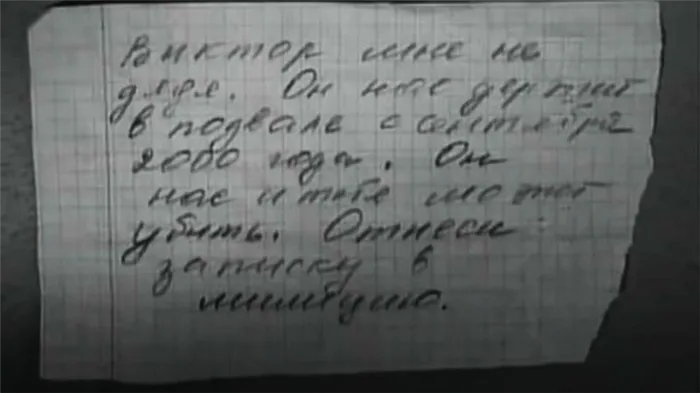 Виктор мне не
дядя. Он нас держит
в подвале с сентября
2000 года. Он
нас и тебе может
убить. Отнеси
записку в
милицию.